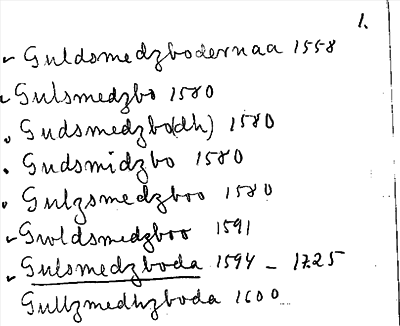 1.
Guldsmedzbodernaa 1558
Gulsmedzbo 1580
Gudsmedzbo(dh) 1580
Gudsmidzbo 1580
Gulzsmedzboo 1580
Gwldsmedzboo 1591
Gulsmedzboda 1594 - 1725
Gullzmedhzboda 1600